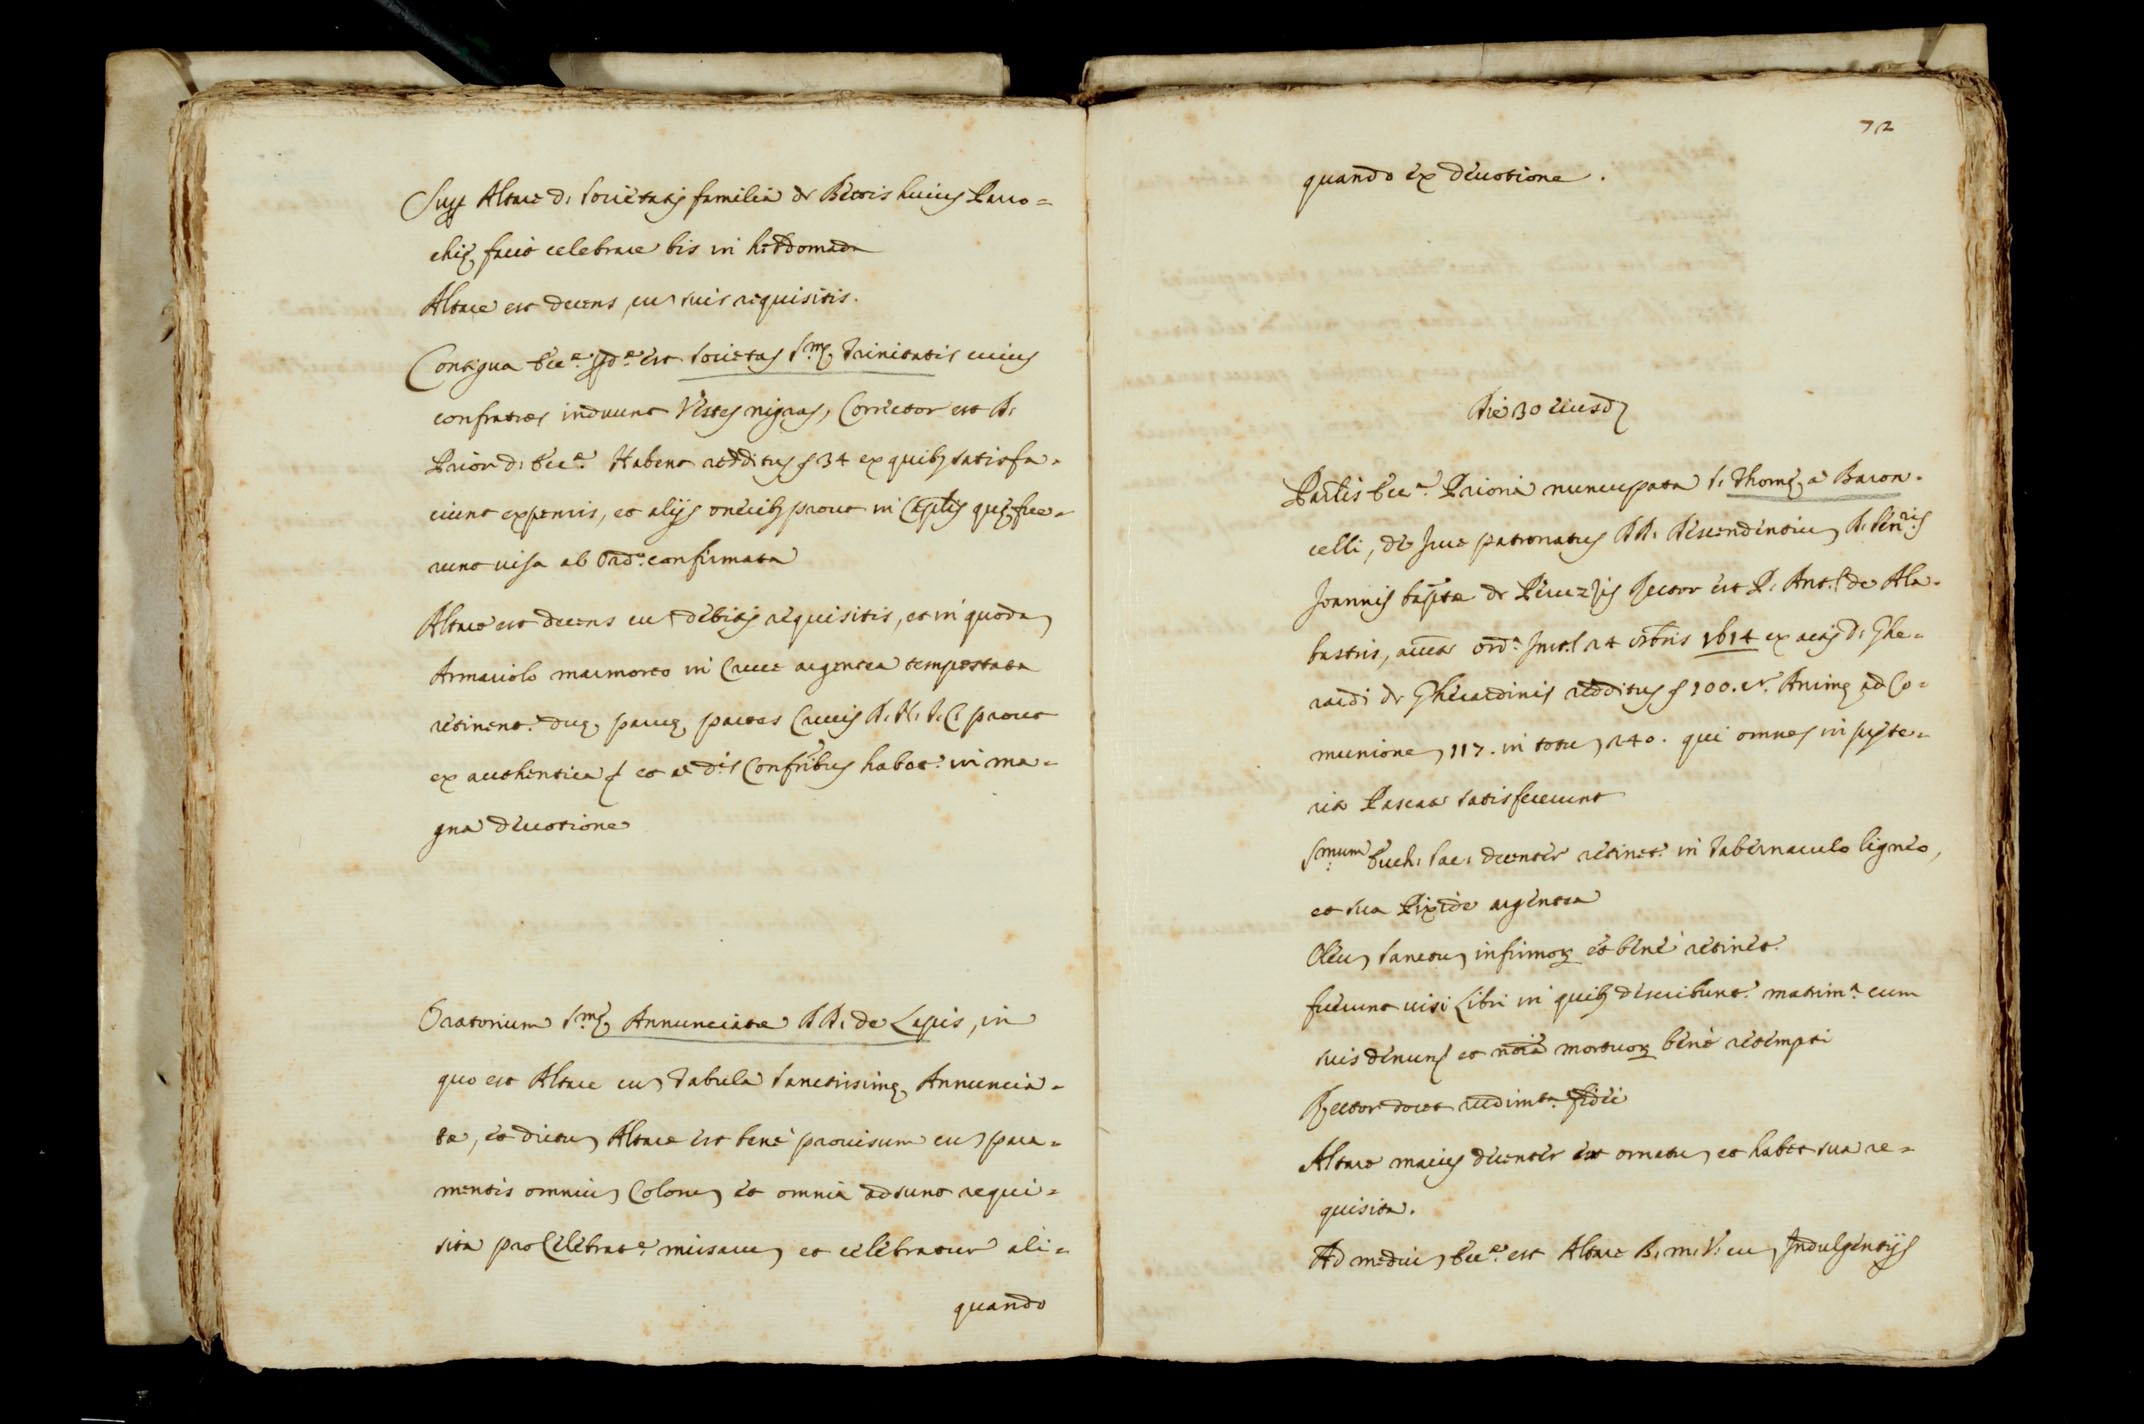 Supr Altare d. societatis familia de Bettis huius Paro=
chię facit celebrare bis in hebdomada
Altare est decens, cu suis requisitis.
Contigua Ecc.ᵃ pd.ᵃ est societas S.mę Trinitatis cuius
confratres induunt Vestes nigras, Corrector est D.
Prior d. Ecc.ᵉ Habent redditus 34 ex quibus satisfa=
ciunt expensis, et alijs oneribus prout in Caplis quę fue=
runt visa ab Ord.º confirmata
Altare est decens cu debitis requisitis, et in quoda
Armariolo marmoreo in Cruce argentea tempestata
retinent.r duę paruę partes Crucis D. N. J. C. prout
ex authentica et a d.is Confribus habet.r in ma=
gna deuotione
Oratorium S.mę Annunciatæ DD. de Lapis, in
quo est Altare cu Tabula Sanctissimę Annuncia=
tæ, et dictu Altare est benè prouisum cu para=
mentis omniu Coloru et omnia adsunt requi=
sita pro Celebrat.e missaru et celebratur ali=
quando
72
quando ex deuotione.
Die 30 eiusd
Parlis Ecc.ᵃ Prioria nuncupata S. Thomę a Baron=
celli, de Jure patronatus DD. Descendentiu D. Sen.ris
Joannis baptæ de Peruzzis Rector est P. Ant.s de Ala=
bastris, auctæ ord.ᵃ Inst. 24 8bris 1614 ex actis d. Ghe=
rardi de Gherardinis redditus 100. Animę ad Co=
munione 117. in totu 240. qui omnes in superte=
rita Pascate satisfecerunt
S.mum Euch. Sac. decenter retinet.r in Tabernaculo ligneo,
et sua Pixide argentea
Oleu Sanctu infirmoru et benè retinet.r
fuerunt uisi Libri in quibus describunt.r matrim.ᵃ cum
suis denunt et noia mortuoru benè retempti
Rector docet rudimta fidei
Altare maius decenter est ornatu et habet sua re=
quisita.
Ad mediu Ecc.ᵉ est Altare B. M. V. cu Indulgentijs